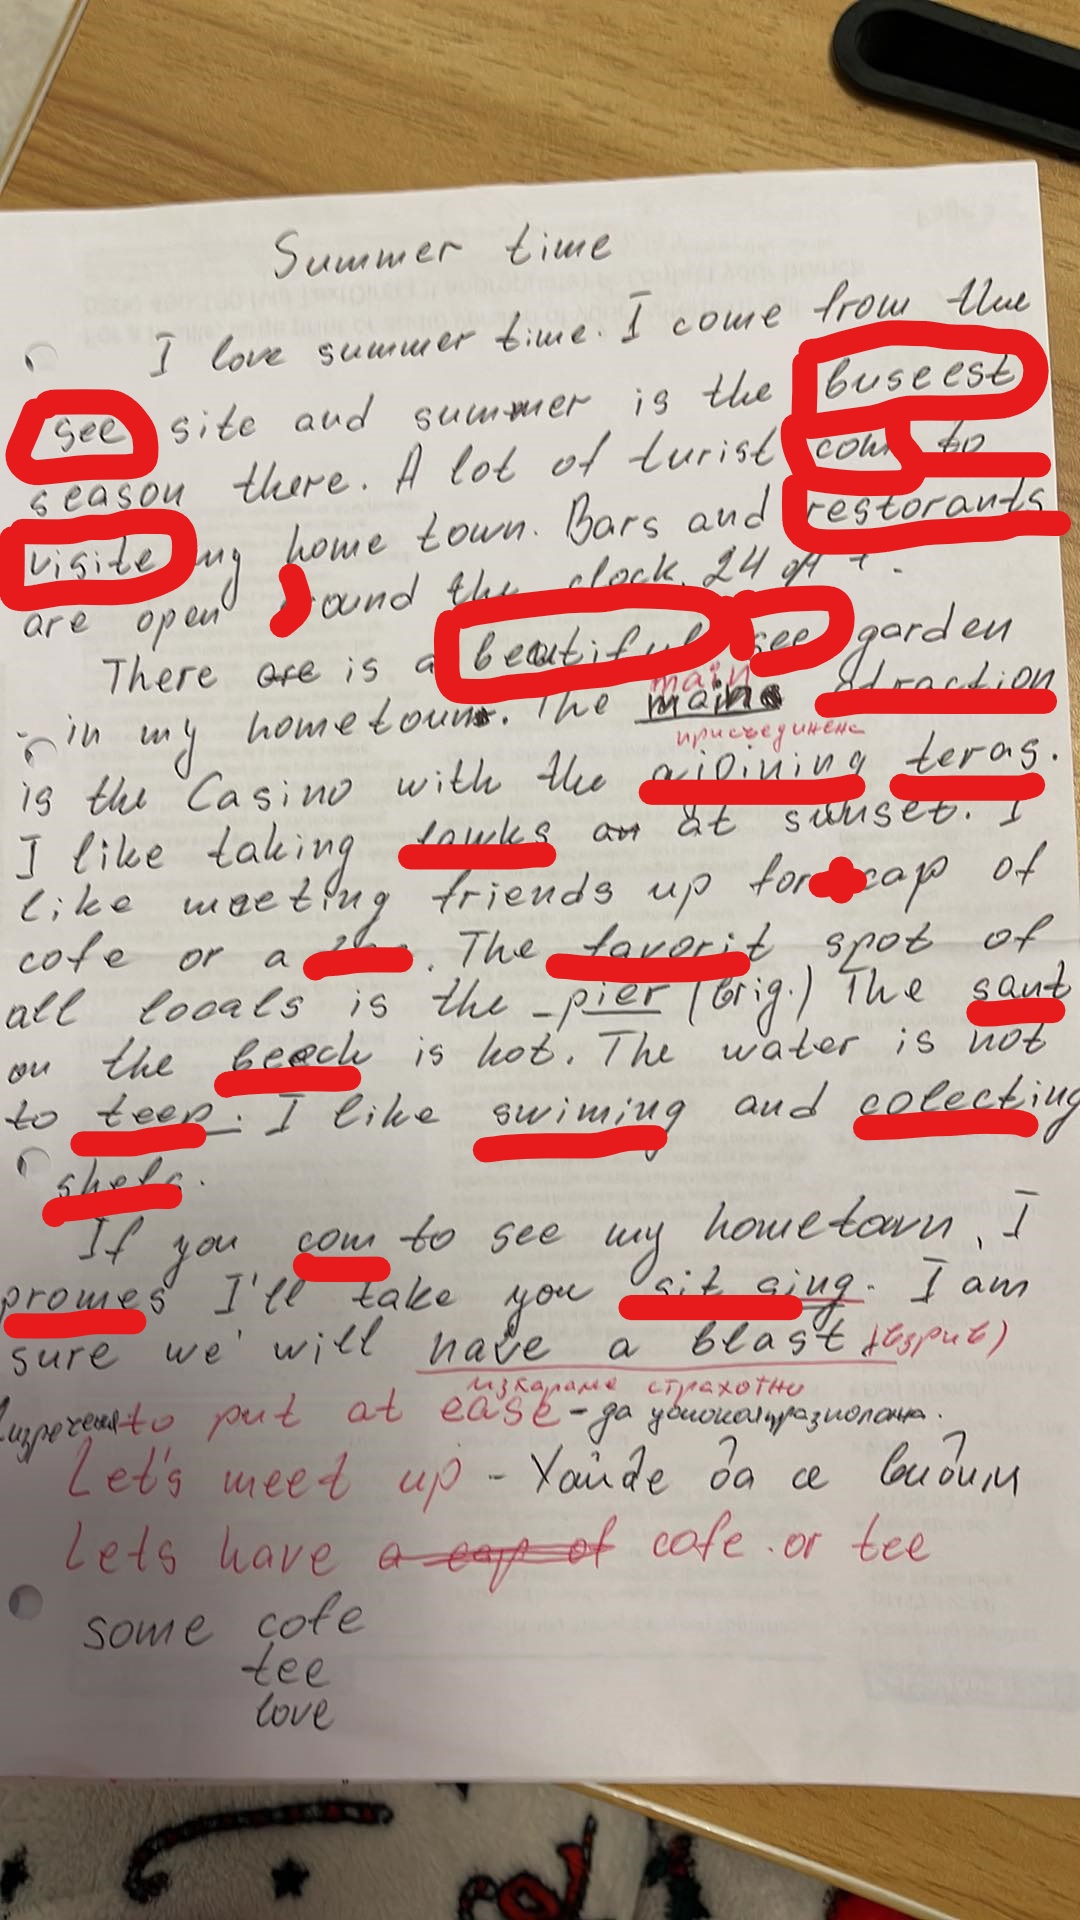 Summer time
I love summer time. I come from the
see site and summer is the buseest
season there. A lot of turist com to
visite my home town. Bars and restorants
are open round the clock. 24
There are is a beautiful see garden
main
in my hometown. The main atraction
присъединена
is the Casino with the ajoining teras.
I like taking at sunset. I
like meeting friends up for cap of
cofe or a . The favorit spot of
all locals is the pier (brig.) The sant
on the beech is hot. The water is not
to teep. I like swiming and colecting
shels.
If you com to see my hometown, I
promes I'll take you sit sing. I am
sure we will have a blast (взрив)
изкараме страхотно
to put at ease - да
Let's meet up - Хайде да се видим
Lets have a cap of cofe or tee
some cofe
tee
love